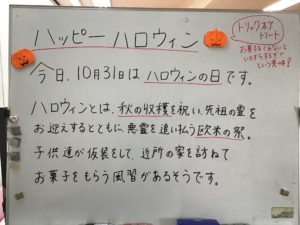 ハッピーハロウィン
トリックオア
トリート
お菓子をくれないと
いたずらするぞ!!
という意味?
今日、10月31日はハロウィンの日です。
ハロウィンとは、秋の収穫を祝い、先祖の霊を
お迎えするとともに、悪霊を追い払う欧米の祭。
子供達が仮装をして、近所の家を訪ねて
お菓子をもらう風習があるそうです。